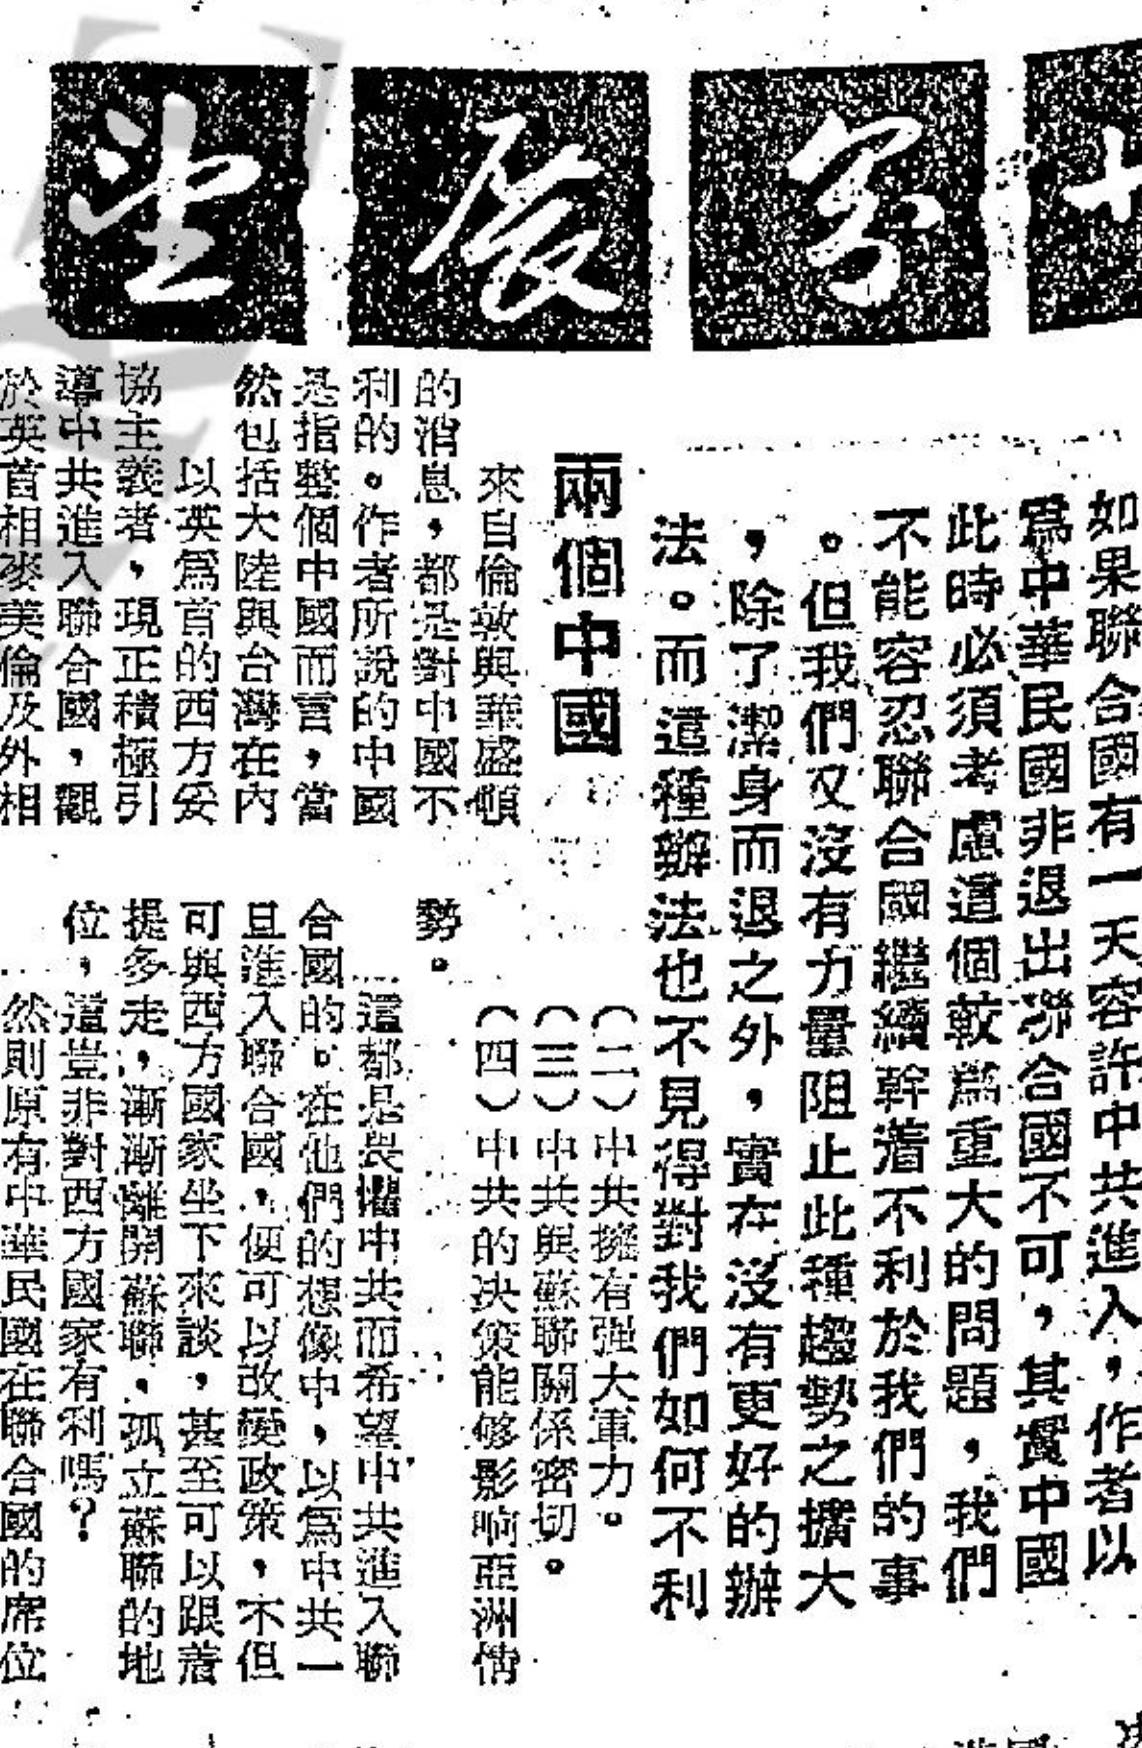 十字展望
如果聯合國有一天容許中共進入，作者以
爲中華民國非退出聯合國不可，其實中國
此時必須考慮這個較爲重大的問題，我們
不能容忍聯合國繼續幹着不利於我們的事
。但我們又沒有力量阻止此種趨勢之擴大
，除了潔身而退之外，實在沒有更好的辦
法。而這種辦法也不見得對我們如何不利
兩個中國
來自倫敦與華盛頓
的消息，都是對中國不
利的。作者所說的中國
是指整個中國而言，當
然包括大陸與台灣在內
以英爲首的西方妥
協主義者，現正積極引
導中共進入聯合國，觀
於英首相麥美倫及外相
（二）中共擁有强大軍力。
（三）中共與蘇聯關係密切。
（四）中共的决策能够影响亞洲情
勢。
這都是畏懼中共而希望中共進入聯
合國的。在他們的想像中，以爲中共一
旦進入聯合國，便可以改變政策，不但
可與西方國家坐下來談，甚至可以跟着
提多走，漸漸離開蘇聯，孤立蘇聯的地
位，這豈非對西方國家有利嗎？
然則原有中華民國在聯合國的席位